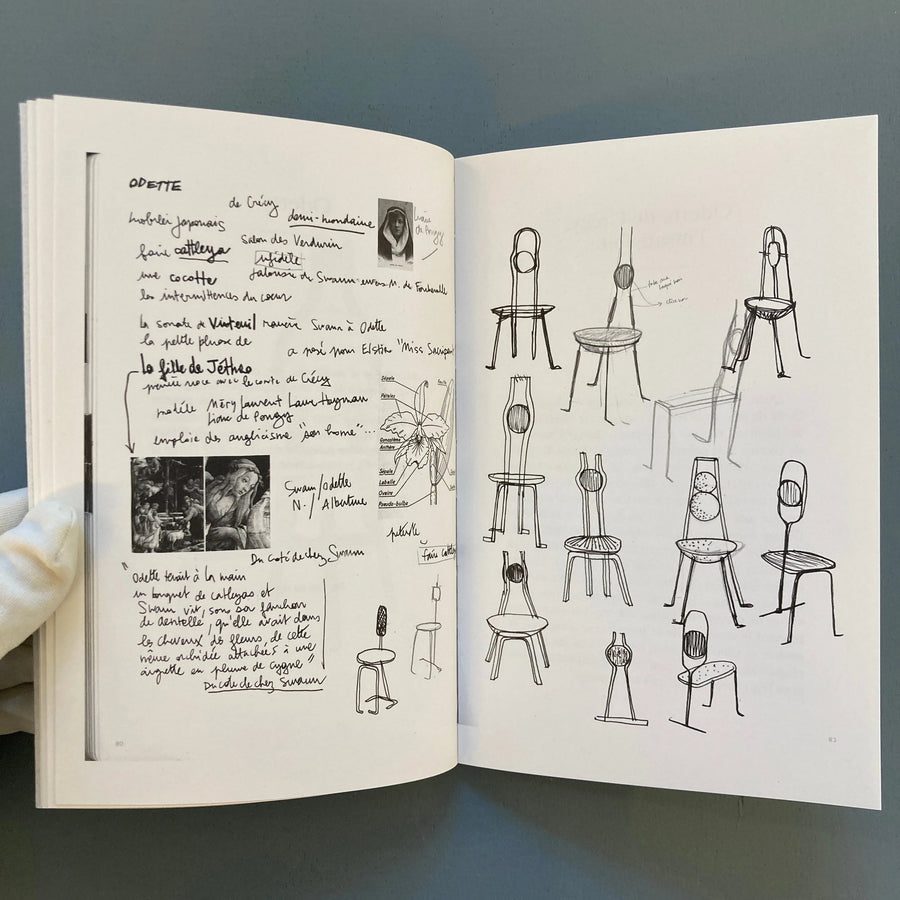 ODETTE
de Crécy
mobilier Japonais
demi-mondaine
faire cattleya
Salon des Verdurin
infidèle
une cocotte
jalousie de Swann envers M. de
les intermittences du coeur
la sonate de Vinteuil Swann à Odette
la petite phrase de
a posé pour Elstir "Miss
La fille de Jéthro
première noce avec le comte de Crécy
modèle Méry Laurent Laure Hayman
Liane de Pougy
emploie des anglicismes "son home"...
Sépale
Pétales
Gynostème
Anthère
Sépale
Labelle
Ovaire
Pseudo-bulbe
Swann/Odette
N./Albertine
Du côté de chez Swann
faire
"Odette tenait à la main
un bouquet de cattleyas et
Swann vit, sous sa fanchon
de dentelle, qu'elle avait dans
les cheveux des fleurs de cette
même orchidée attachées à une
aigrette en plumes de cygne"
Du côté de chez Swann
80